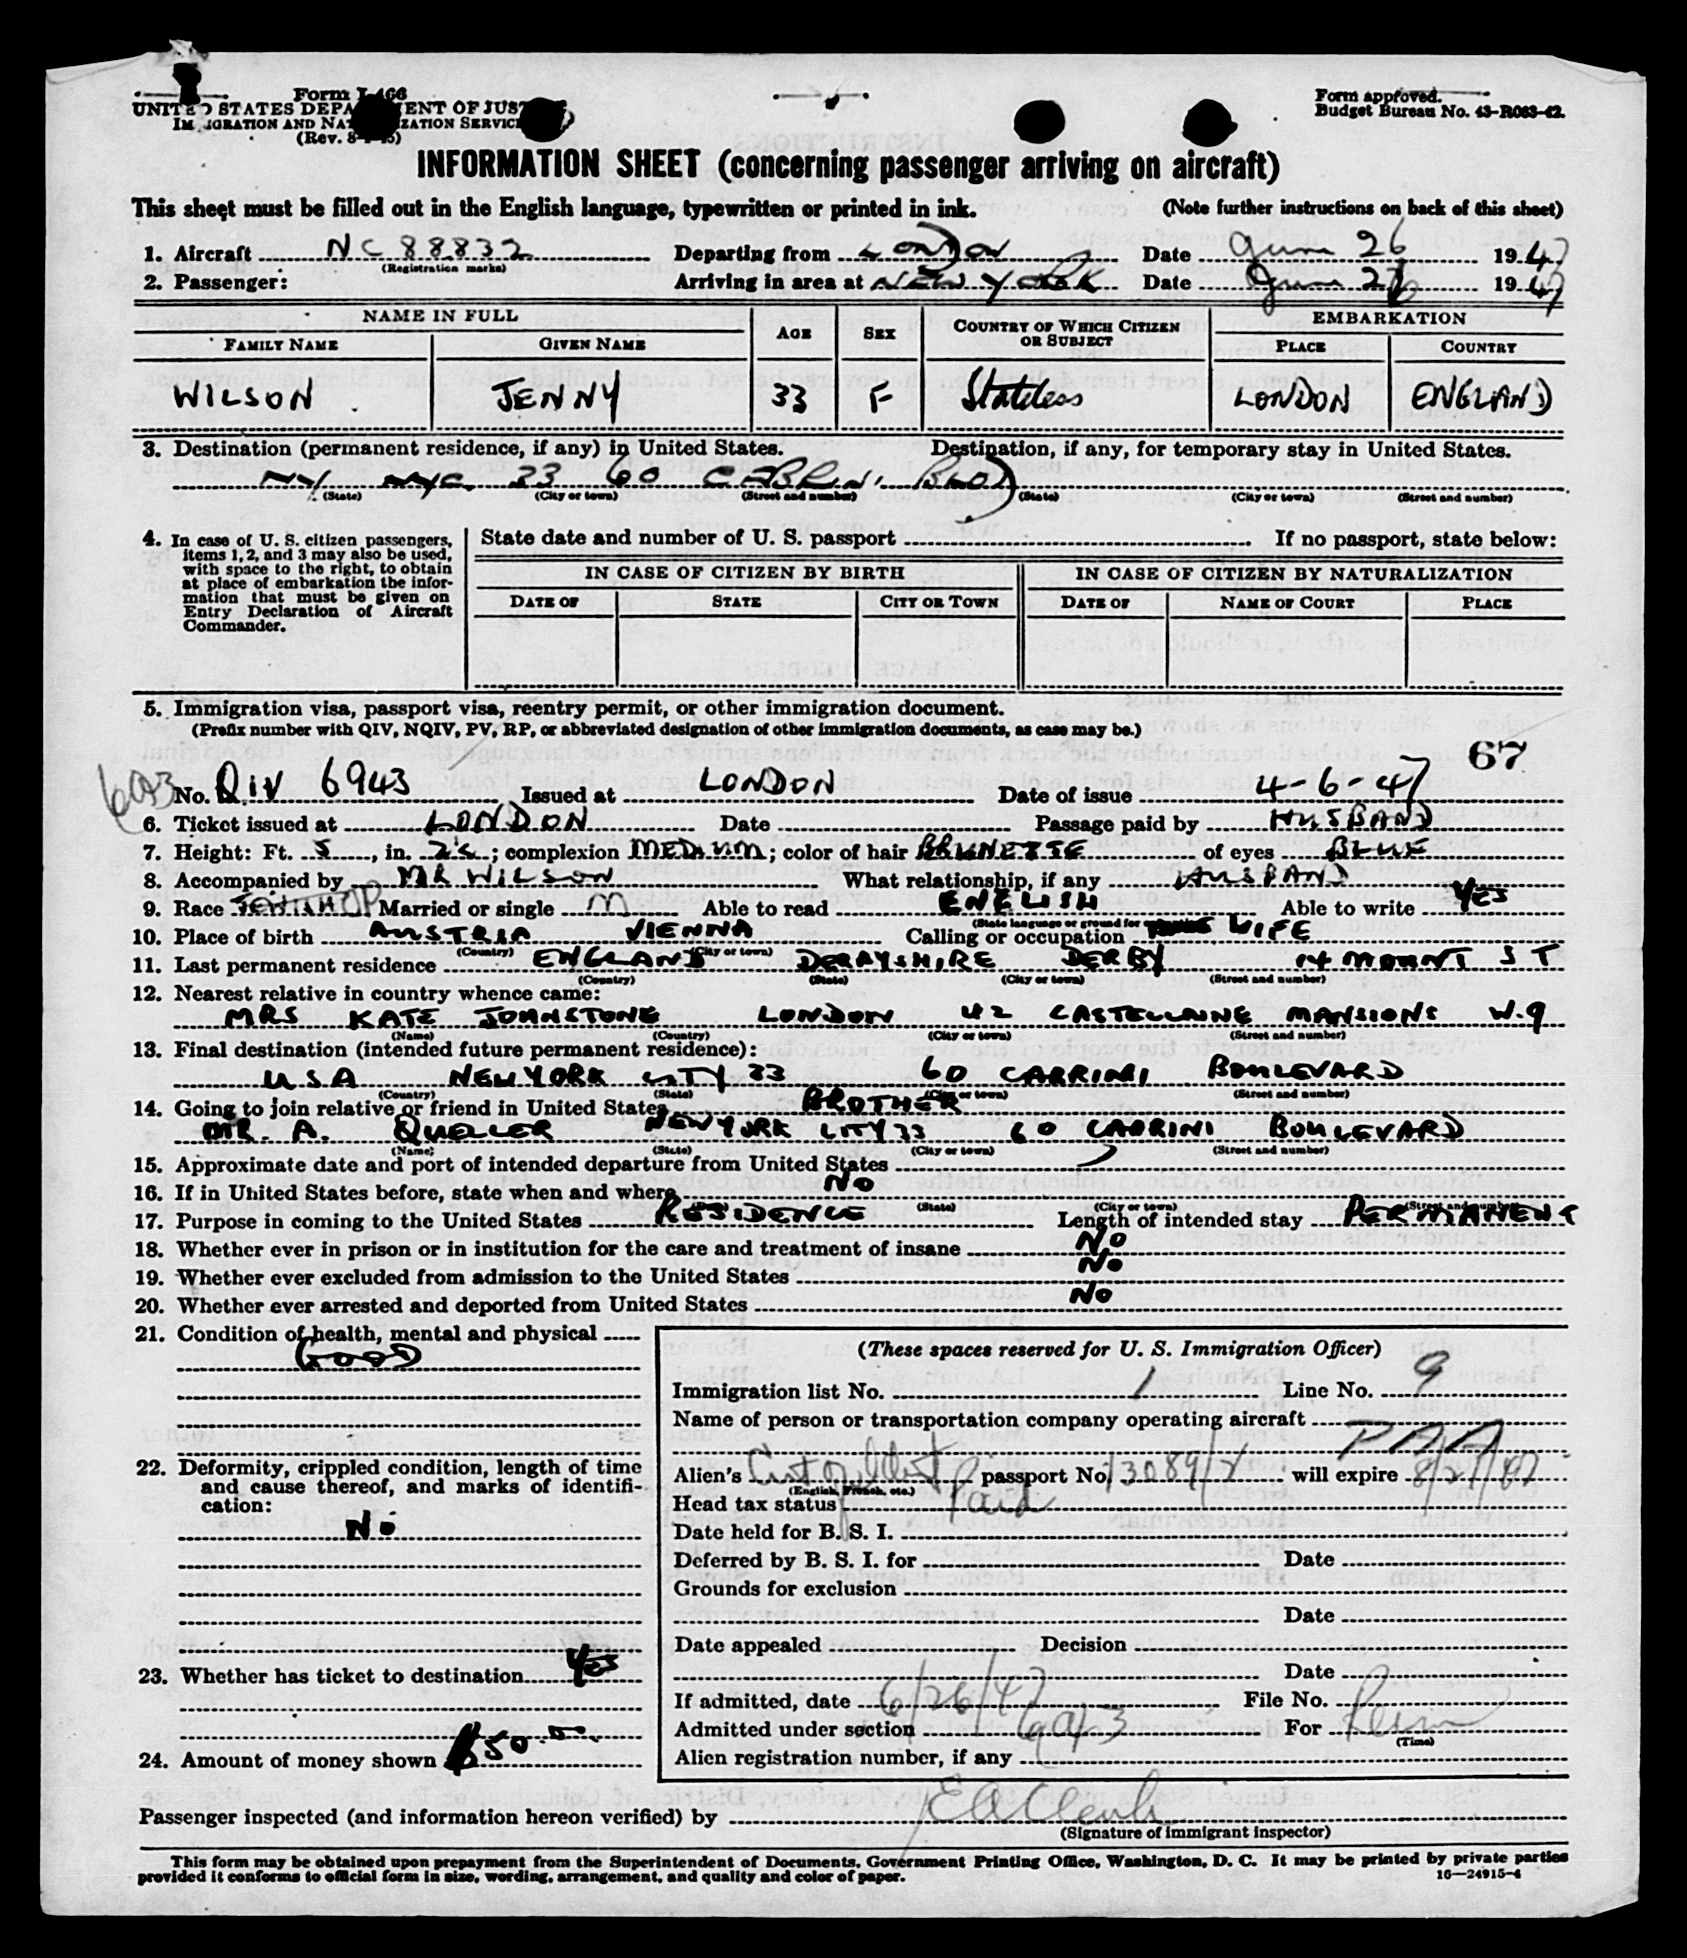 Form I-466
UNITED STATES DEPARTMENT OF JUSTICE
IMMIGRATION AND NATURALIZATION SERVICE
(Rev. 8-
Form approved.
Budget Bureau No. 43-R063-42.
INFORMATION SHEET (concerning passenger arriving on aircraft)
This sheet must be filled out in the English language, typewritten or printed in ink. (Note further instructions on back of this sheet)
1. Aircraft NC 88832 Departing from LONDON Date June 26 1947
(Registration marks)
2. Passenger: Arriving in area at NEW YORK Date June 1947
NAME IN FULL AGE SEX COUNTRY OF WHICH CITIZEN OR SUBJECT EMBARKATION
FAMILY NAME GIVEN NAME PLACE COUNTRY
WILSON JENNY 33 F Stateless LONDON ENGLAND
3. Destination (permanent residence, if any) in United States. Destination, if any, for temporary stay in United States.
NY NYC 33 60 CABRINI BLVD
(State) (City or town) (Street and number) (State) (City or town) (Street and number)
4. In case of U. S. citizen passengers, items 1, 2, and 3 may also be used, with space to the right, to obtain at place of embarkation the information that must be given on Entry Declaration of Aircraft Commander.
State date and number of U. S. passport If no passport, state below:
IN CASE OF CITIZEN BY BIRTH IN CASE OF CITIZEN BY NATURALIZATION
DATE OF STATE CITY OR TOWN DATE OF NAME OF COURT PLACE
5. Immigration visa, passport visa, reentry permit, or other immigration document.
(Prefix number with QIV, NQIV, PV, RP, or abbreviated designation of other immigration documents, as case may be.)
67
No. QIV 6943 Issued at LONDON Date of issue 4-6-47
6. Ticket issued at LONDON Date Passage paid by HUSBAND
7. Height: Ft. 5, in. 2½; complexion MEDIUM; color of hair BRUNETTE of eyes BLUE
8. Accompanied by MR WILSON What relationship, if any HUSBAND
9. Race JEWISH Married or single M Able to read ENGLISH Able to write YES
(State language or ground for
10. Place of birth AUSTRIA VIENNA Calling or occupation WIFE
(Country) (City or town)
11. Last permanent residence ENGLAND DERBYSHIRE DERBY 14 MOUNT ST
(Country) (State) (City or town) (Street and number)
12. Nearest relative in country whence came:
MRS KATE JOHNSTONE LONDON 42 CASTELLAINE MANSIONS W.9
(Name) (Country) (City or town) (Street and number)
13. Final destination (intended future permanent residence):
USA NEW YORK CITY 33 60 CABRINI BOULEVARD
(Country) (State) (City or town) (Street and number)
14. Going to join relative or friend in United States BROTHER
MR. A. QUELLER NEW YORK CITY 33 60 CABRINI BOULEVARD
(Name) (State) (City or town) (Street and number)
15. Approximate date and port of intended departure from United States
16. If in United States before, state when and where NO
(State) (City or town) (Street and number)
17. Purpose in coming to the United States RESIDENCE Length of intended stay PERMANENT
18. Whether ever in prison or in institution for the care and treatment of insane NO
19. Whether ever excluded from admission to the United States NO
20. Whether ever arrested and deported from United States NO
21. Condition of health, mental and physical
GOOD
22. Deformity, crippled condition, length of time and cause thereof, and marks of identification:
No
23. Whether has ticket to destination Yes
24. Amount of money shown $50.
(These spaces reserved for U. S. Immigration Officer)
Immigration list No. 1 Line No. 9
Name of person or transportation company operating aircraft
PAA
Alien's Cert of Ident passport No. will expire
(English, French, etc.)
Head tax status Paid
Date held for B. S. I.
Deferred by B. S. I. for Date
Grounds for exclusion
Date
Date appealed Decision
Date
If admitted, date 6/26/47 File No.
Admitted under section For Perm
(Time)
Alien registration number, if any
Passenger inspected (and information hereon verified) by
(Signature of immigrant inspector)
This form may be obtained upon prepayment from the Superintendent of Documents, Government Printing Office, Washington, D. C. It may be printed by private parties
provided it conforms to official form in size, wording, arrangement, and quality and color of paper. 16—24915-4